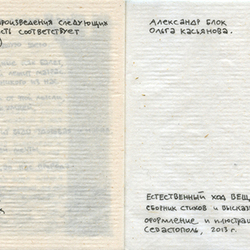 произведения следующих
сть соответствует
)
Александр Блок
Ольга Касьянова.
Естественный ход вещ
сборник стихов и выска
оформление и илюстра
Севастополь, 2013 г.